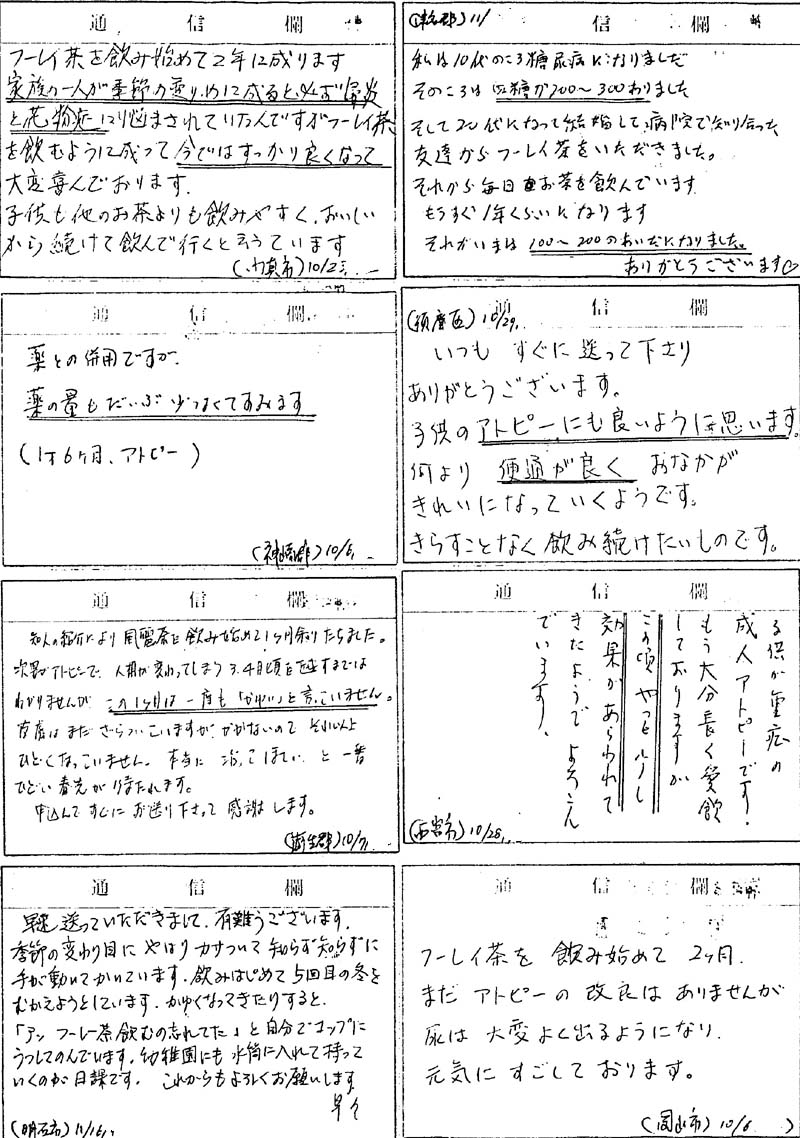 通信欄
フーレイ茶を飲み始めて2年に成ります
家族の一人が季節の変りめに成ると必ず鼻炎
と花粉症に悩まされていたんですがフーレイ茶
を飲むように成って今ではすっかり良くなって
大変喜んでおります.
子供も他のお茶よりも飲みやすく、おいしい
から続けて飲んで行くと言っています
真市) 10/2
信欄
郡) 11/
私は10代のころ糖尿病になりましだ
そのころは血糖が200〜300ありました
そして20代になって結婚して、病院で知り合った
友達からフーレイ茶をいただきました。
それから毎日お茶を飲んでいます
もうすぐ1年くらいになります
それがいまは100〜200のあいだになりました。
ありがとうございます♡
通信欄
薬との併用ですが、
薬の量もだいぶ少なくてすみます
(1才6ヶ月、アトピー)
(神崎郡) 10/6
通信欄
(須磨区) 10/29.
いつも すぐに送って下さり
ありがとうございます。
子供のアトピーにも良いように思います.
何より 便通が良く おなかが
きれいになっていくようです。
きらすことなく飲み続けたいものです。
通信欄
知人の紹介により風靈茶を飲み始めて1ヶ月余りたちました。
次男がアトピーで、人相が変わってしまう3.4月頃を過すまでは
わかりませんが この1ヶ月は一度も「かゆい」と言っていません。
皮膚はまだざらついていますが、かかないので それ以上
ひどくなっていません。本当に 治ってほしい と一番
ひどい春先が待たれます。
申込んですぐにお送り下さって感謝します。
郡) 10/7
通信欄
子供が重症の
成人アトピーです.
もう大分長く愛飲
しておりますが
この頃やっと少し
効果があらわれて
きたようでよろこん
でいます.
(西宮市) 10/28
通信欄
早速送っていただきまして、有難うございます.
季節の変わり目に やはりカサついて知らず知らずに
手が動いてかいています.飲みはじめて5回目の冬を
むかえようとしています.かゆくなってきたりすると、
「アッ フーレー茶飲むの忘れてた」と自分でコップに
うつしてのんでいます.幼稚園にも水筒に入れて持って
いくのが日課です. これからもよろしくお願いします
早々
(明石市) 11/16
通信欄
フーレイ茶を 飲み始めて 2ヶ月.
まだ アトピーの 改良は ありませんが
尿は 大変 よく出るようになり.
元気に すごして おります。
(岡山市) 10/6 )